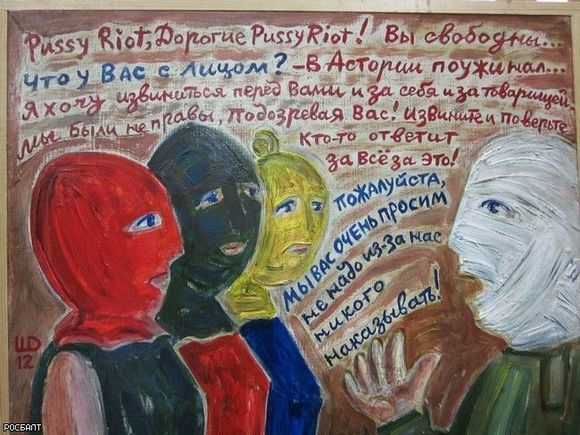 Pussy Riot, Дорогие Pussy Riot! Вы свободны...
Что у Вас с лицом? – В Астории поужинал...
Я хочу извиниться перед Вами и за себя и за товарищей.
Мы были не правы, подозревая Вас! Извините и поверьте
Кто-то ответит
за всё за это!
Пожалуйста,
Мы вас очень просим
не надо из-за нас
никого
наказывать!
ШО
12
РОСБАЛТ